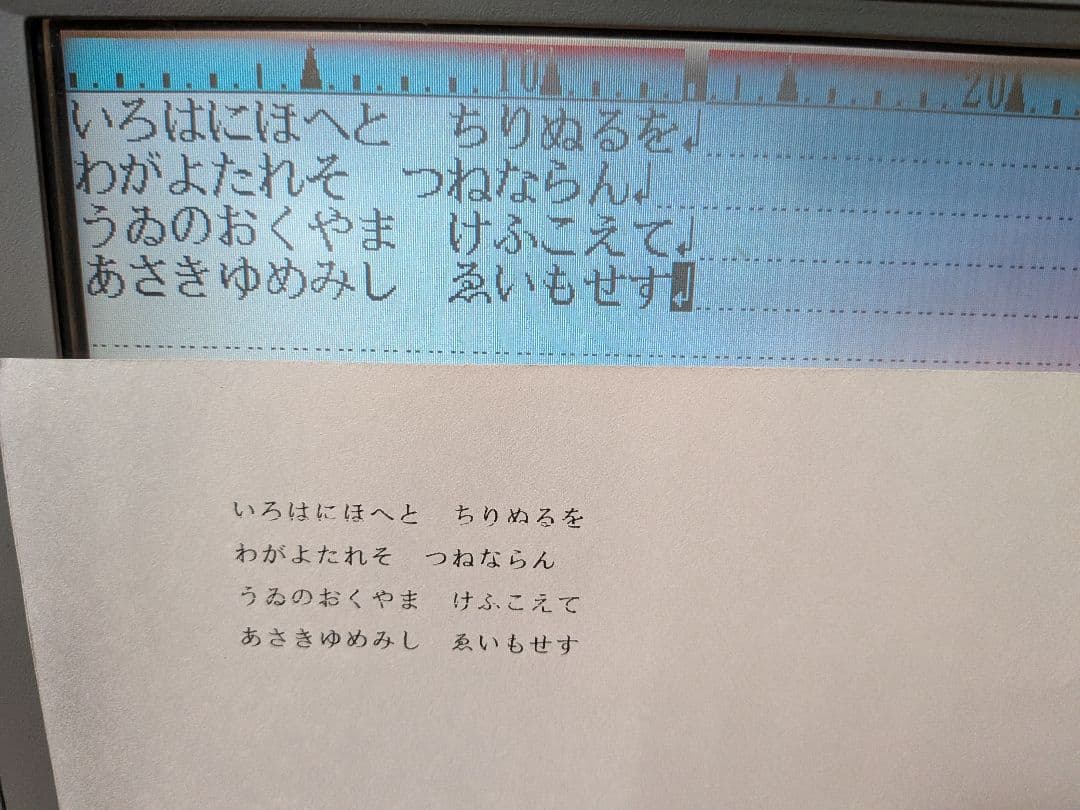 10 20
いろはにほへと　ちりぬるを
わがよたれそ　つねならん
うゐのおくやま　けふこえて
あさきゆめみし　ゑいもせす
いろはにほへと　ちりぬるを
わがよたれそ　つねならん
うゐのおくやま　けふこえて
あさきゆめみし　ゑいもせす